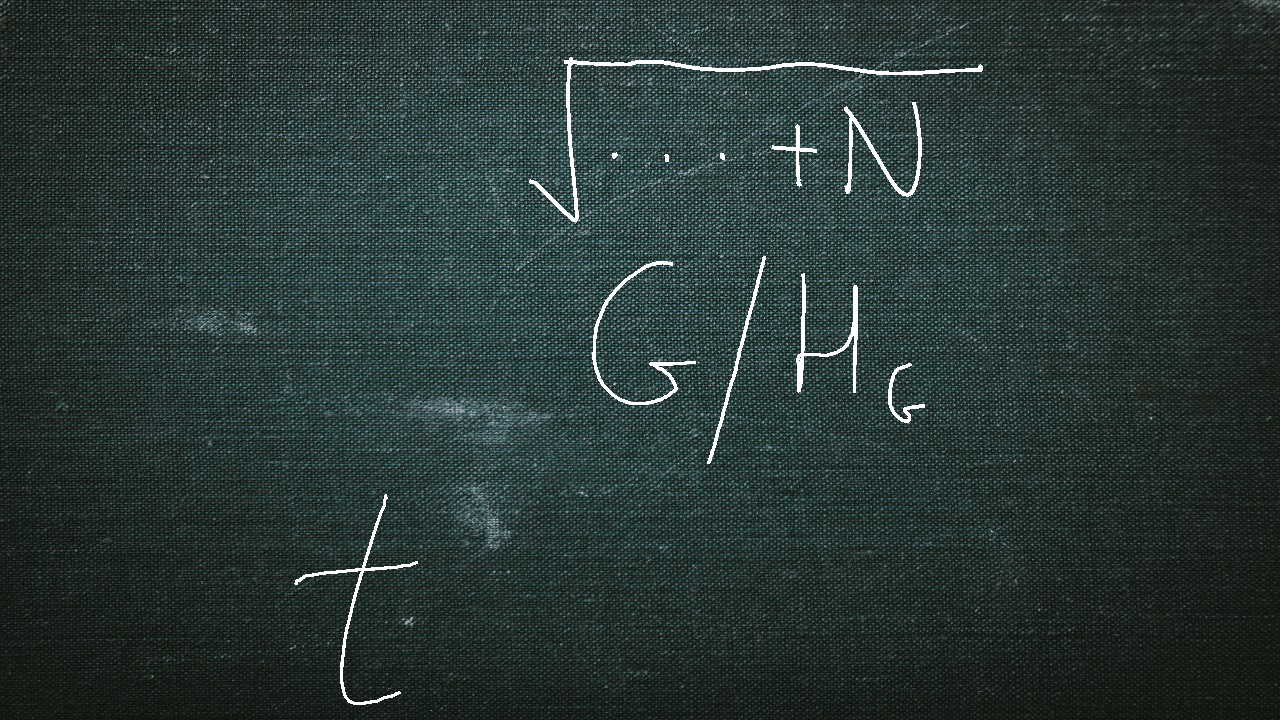 √(... + N)
G/H_G
t